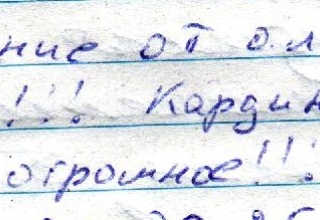 ние от ол
!!! Кардин
огромное!!!